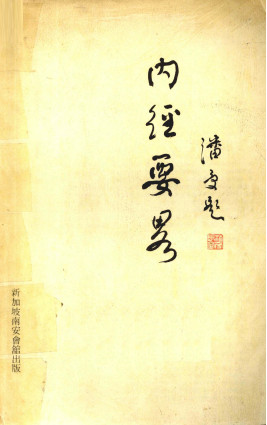 內經要畧
潘受題
新加坡南安會館出版